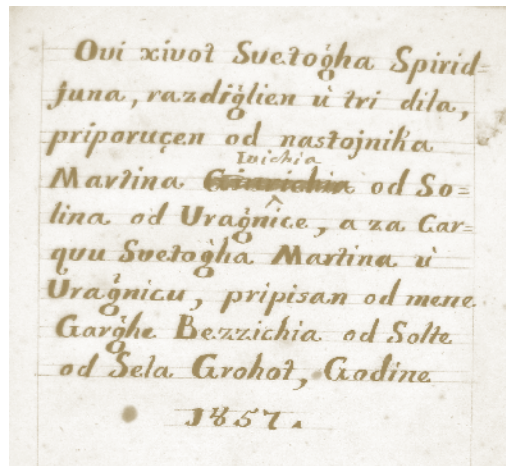 Ovi xivot Svetoġha Spirid=
juna, razdiġlien ù tri dila,
priporuçen od nastojnika
Ivichia
Martina od So=
lina od Uraġnice, a za Car=
quu Svetoġha Martina ù
Uraġnicu, pripisan od mene
Garġhe Bezzichia od Solte
od Sela Grohot, Godine
1857.